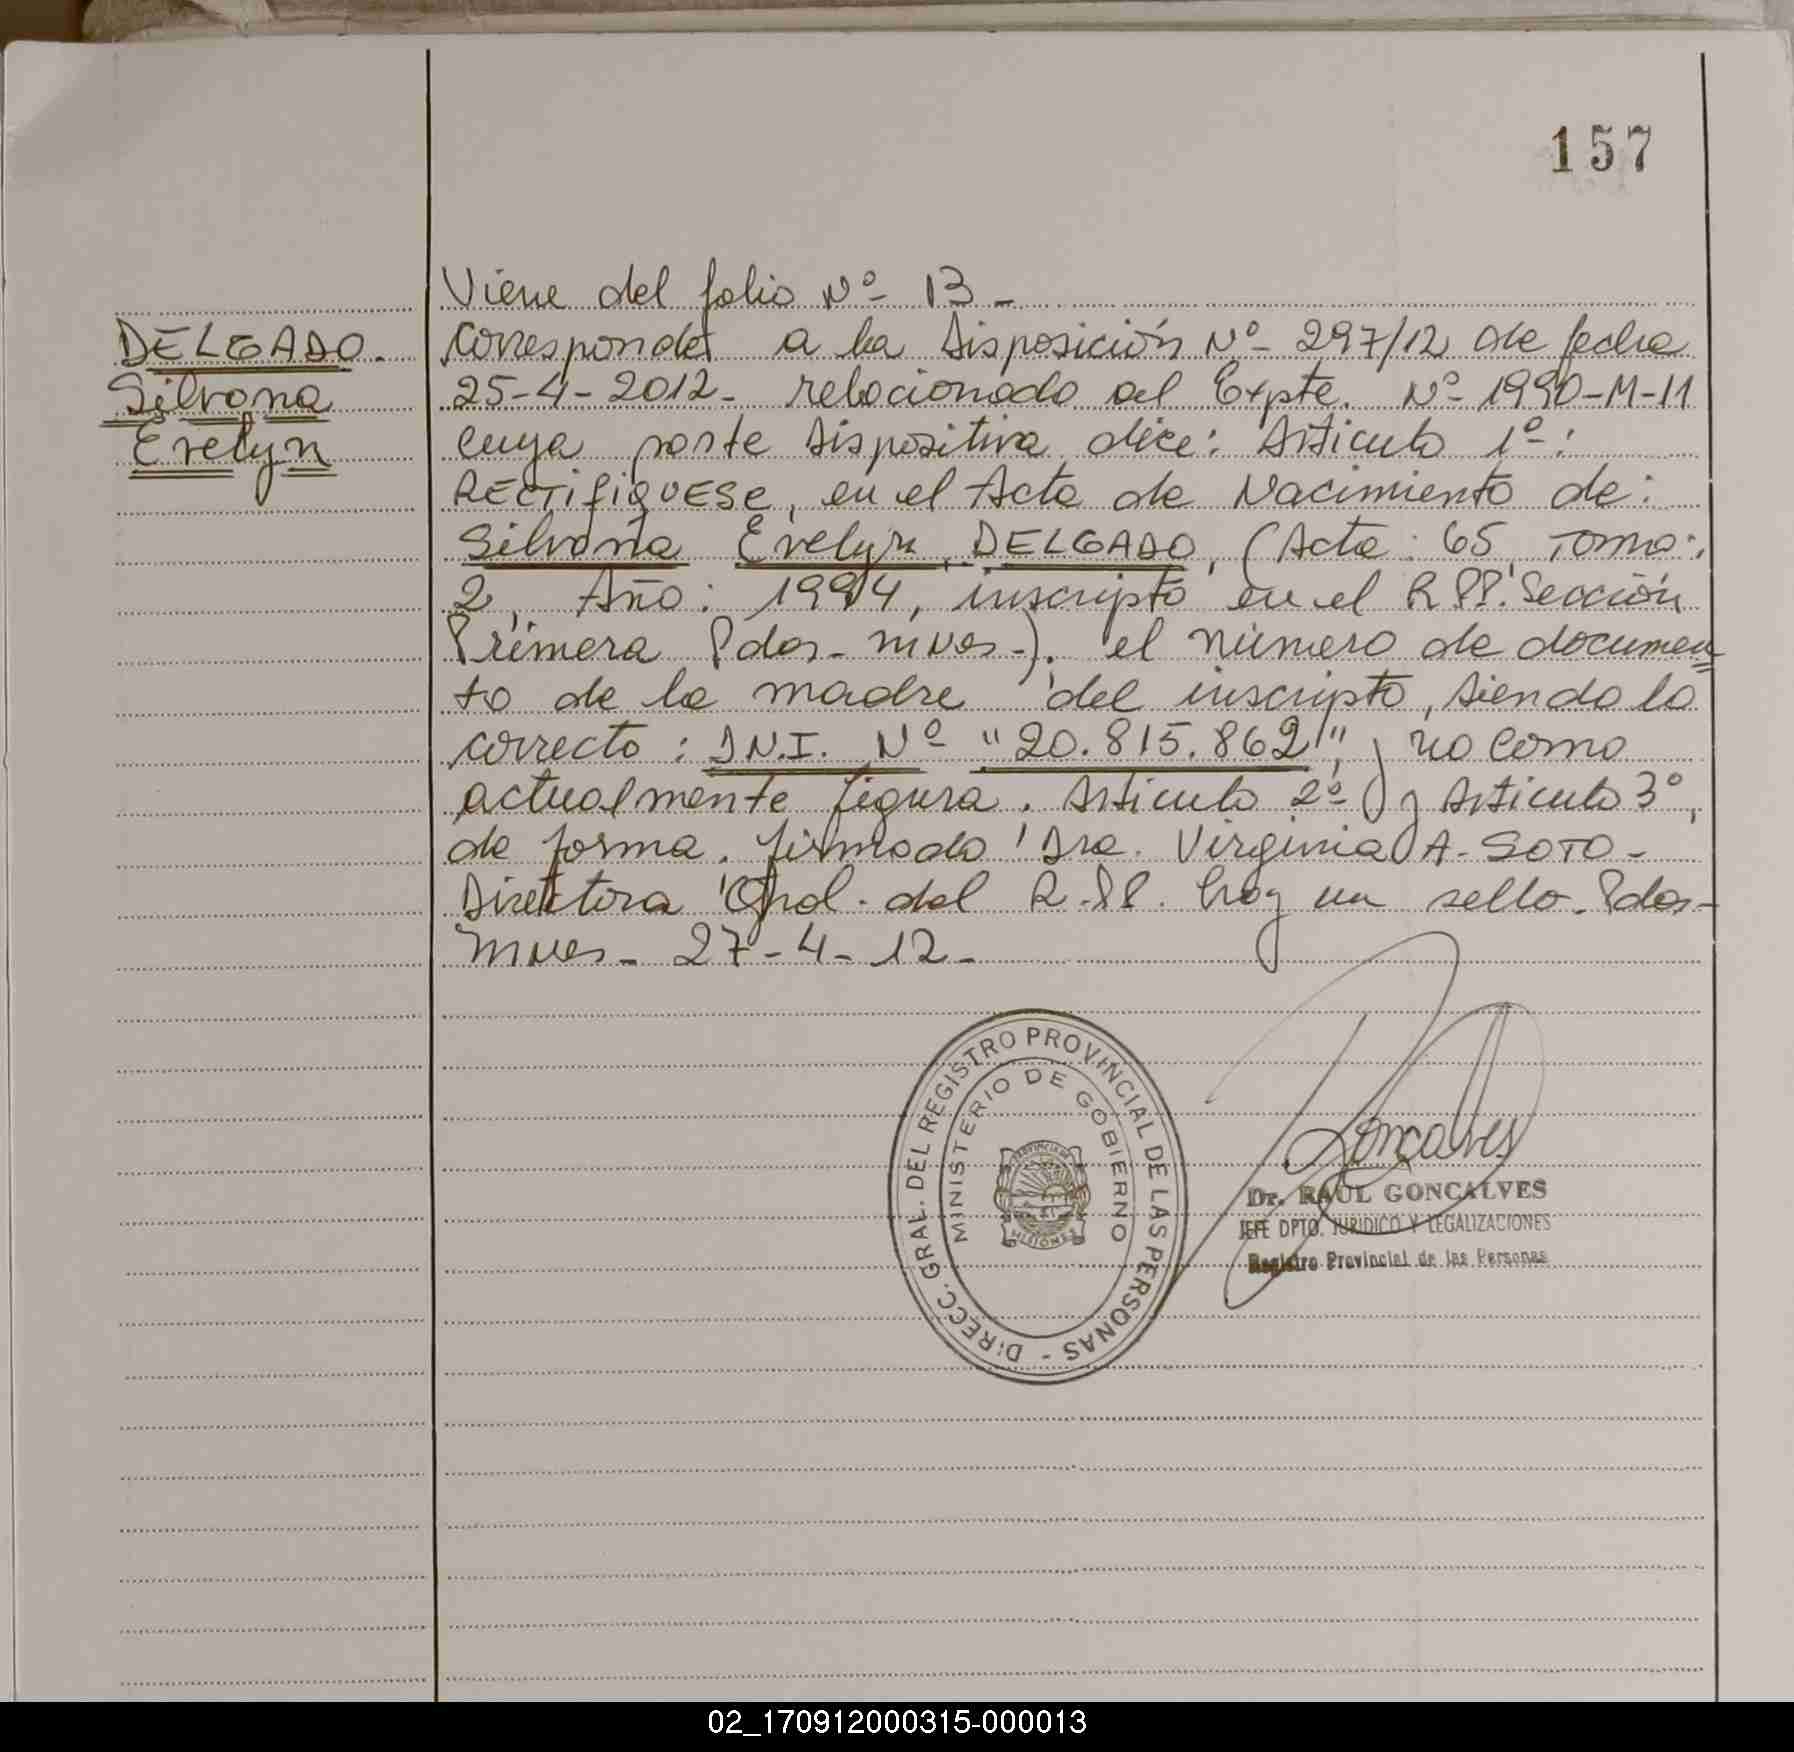 157
Viene del folio Nº 13 -
DELGADO.
Silvana
Evelyn
Corresponde a la Disposición Nº 297/12 de fecha
25-4-2012- relacionado al Expte. Nº 1990-M-11
cuya parte dispositiva dice: Articulo 1º:
RECTIFIQUESE, en el Acta de Nacimiento de:
Silvana Evelyn DELGADO, (Acta: 65, Tomo:
2, Año: 1994, inscripto en el R.P.P. Sección
Primera Pdas- Mnes-). el número de documen
to de la madre del inscripto, siendo lo
correcto: D.N.I. Nº "20.815.862", y no como
actualmente figura. Articulo 2º y Articulo 3º,
de forma. firmado Dra. Virginia A. SOTO-
Directora Gral. del R.P.P. hay un sello. Pdas-
Mnes- 27-4-12-
DIRECC. GRAL. DEL REGISTRO PROVINCIAL DE LAS PERSONAS -
MINISTERIO DE GOBIERNO
PROVINCIA DE
MISIONES
Goncalves
Dr. RAUL GONCALVES
JEFE DPTO. JURIDICO Y LEGALIZACIONES
Registro Provincial de las Personas
02_170912000315-000013